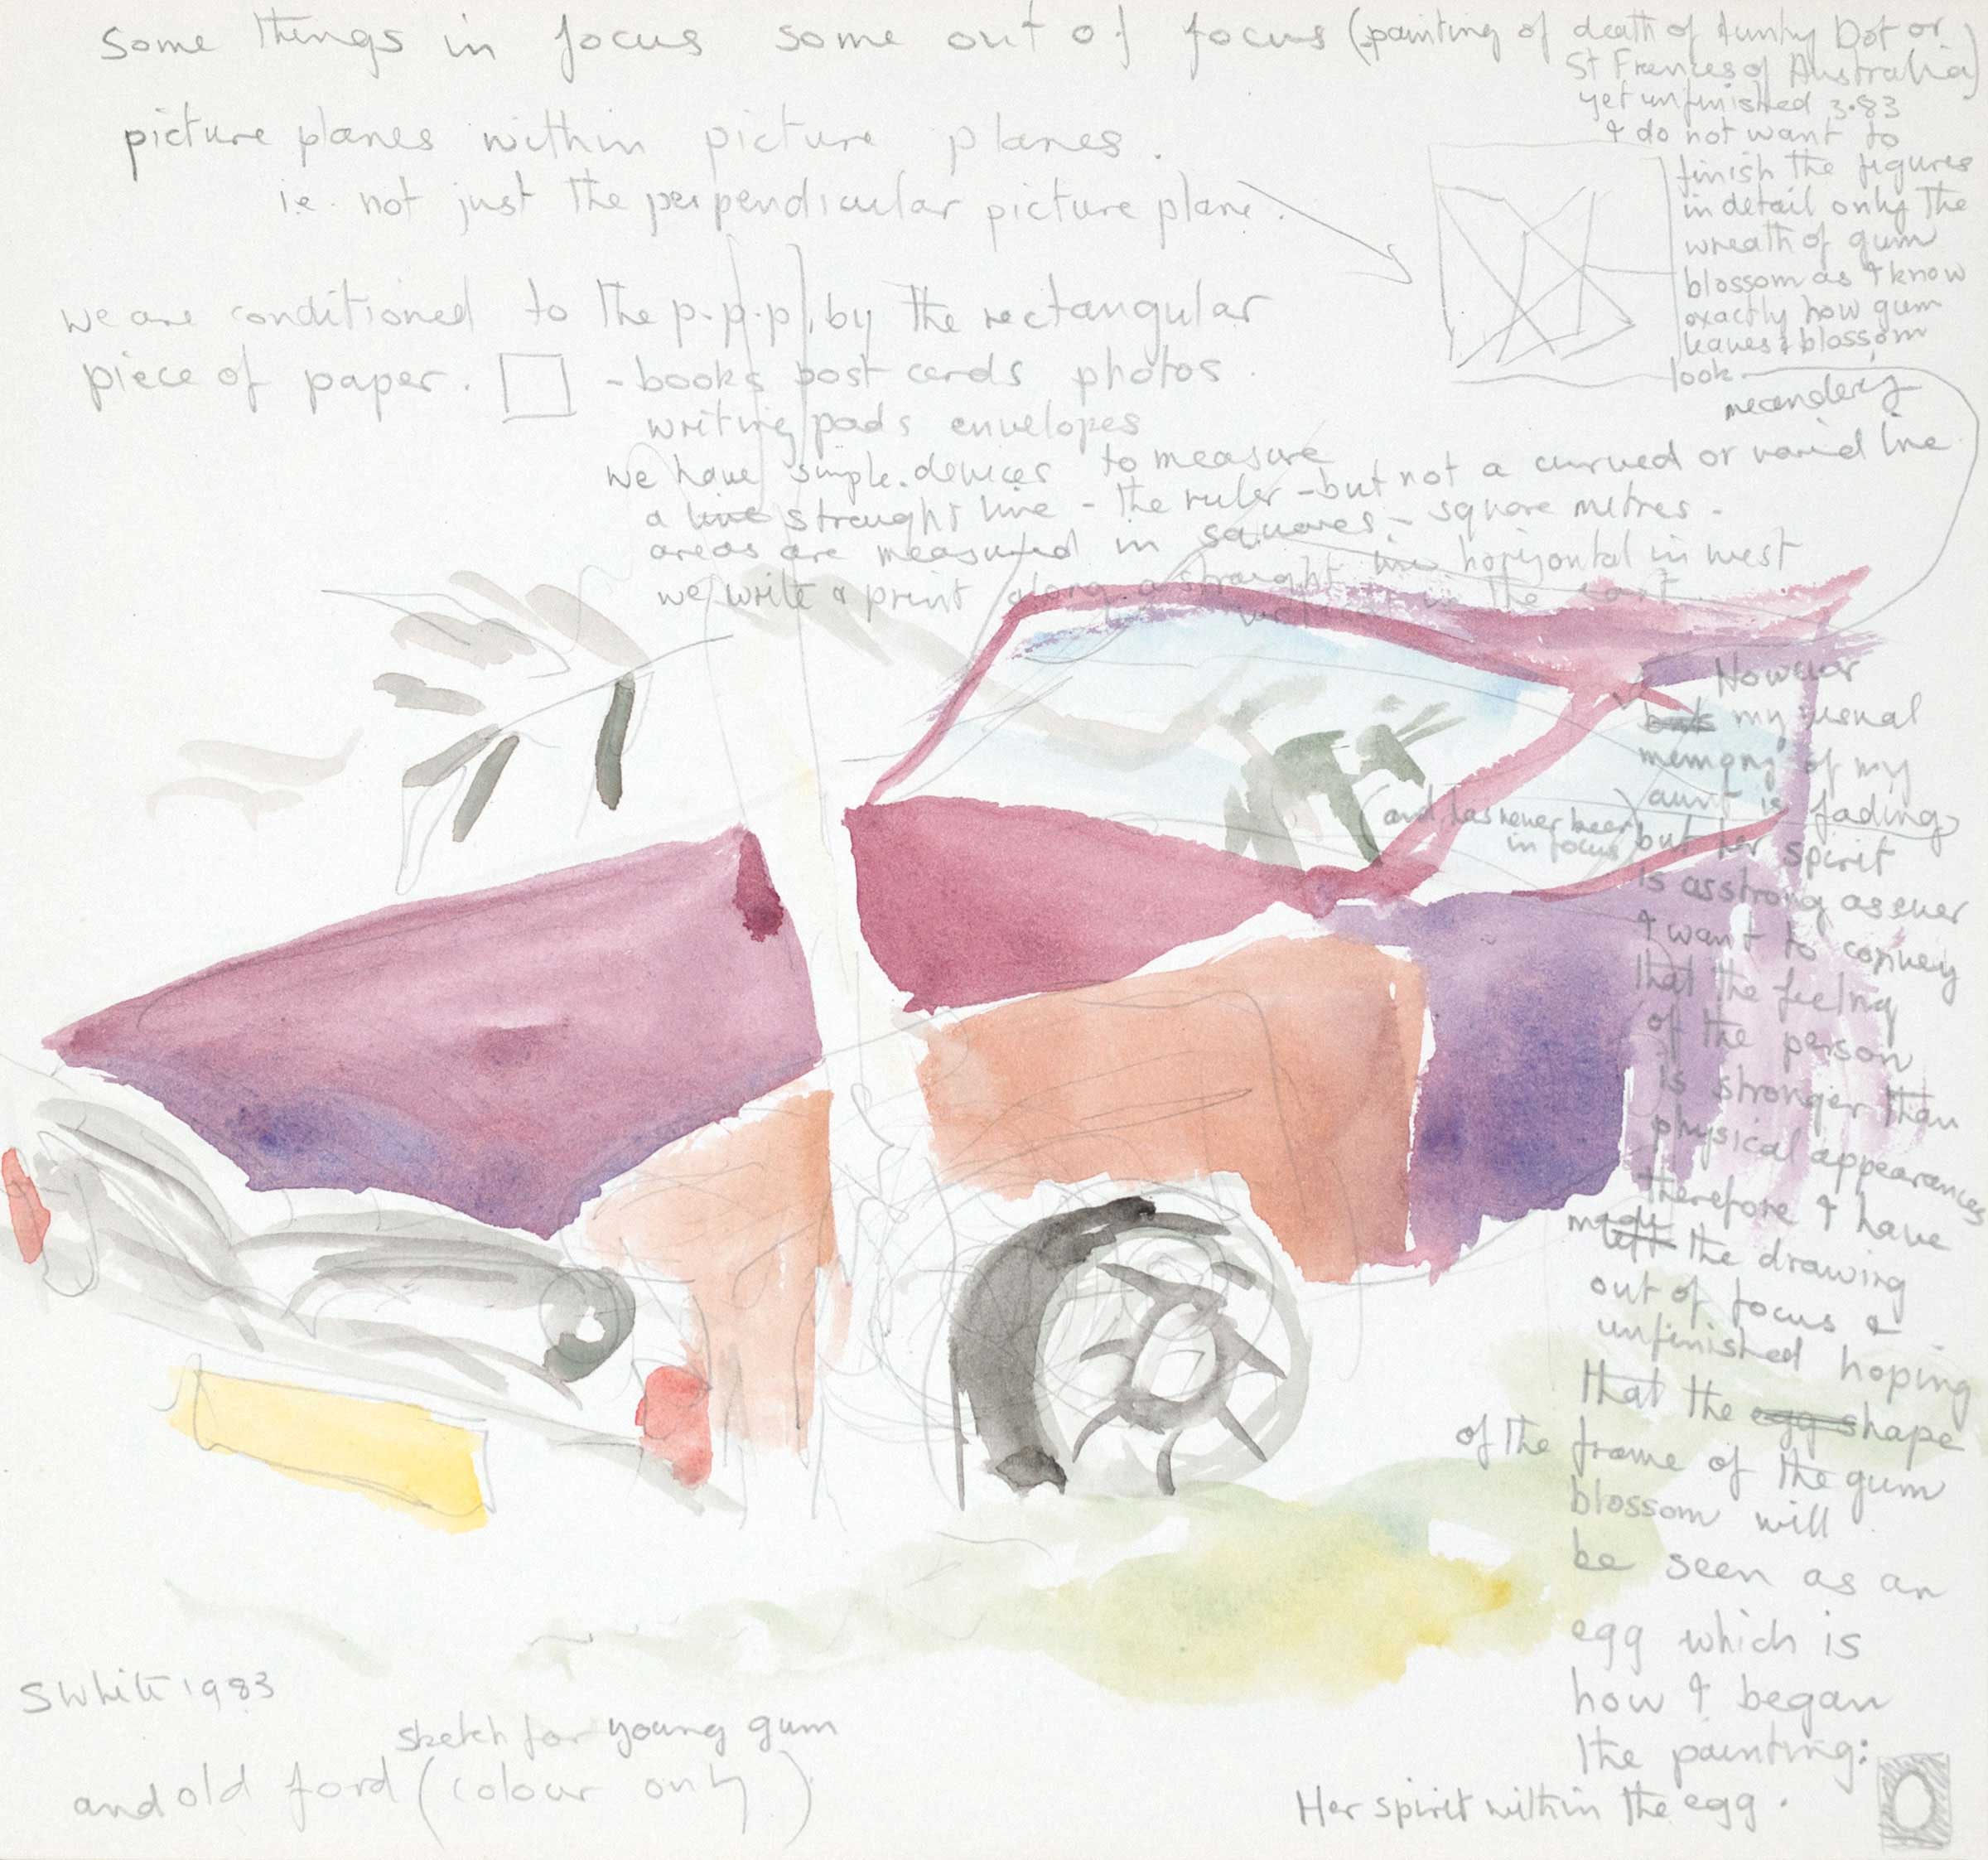 some things in focus some out of focus (painting of death of Aunty Dot or
St Frances of Australia)
yet unfinished 3.83
I do not want to
finish the figures
in detail only the
wreath of gum
blossom as I know
exactly how gum
leaves & blossom
look
picture planes within picture planes.
i.e. not just the perpendicular picture plane.
we are conditioned to the p.p.p. by the rectangular
piece of paper. - books post cards photos.
writing pads envelopes
we have simple devices to measure
a line straight line - the ruler - but not a curved or varied line
meandery
areas are measured in squares - square metres -
we write & print along a straight line horizontal in west
in the east
However
but my usual
memory of my
aunt is fading
(and has never been
in focus)
but her spirit
is as strong as ever
I want to convey
that the feeling
of the person
is stronger than
physical appearances
therefore I have
made
left the drawing
out of focus &
unfinished hoping
that the egg shape
of the frame of the gum
blossom will
be seen as an
egg which is
how I began
the painting:
Her spirit within the egg.
S White 1983
sketch for young gum
and old ford (colour only)